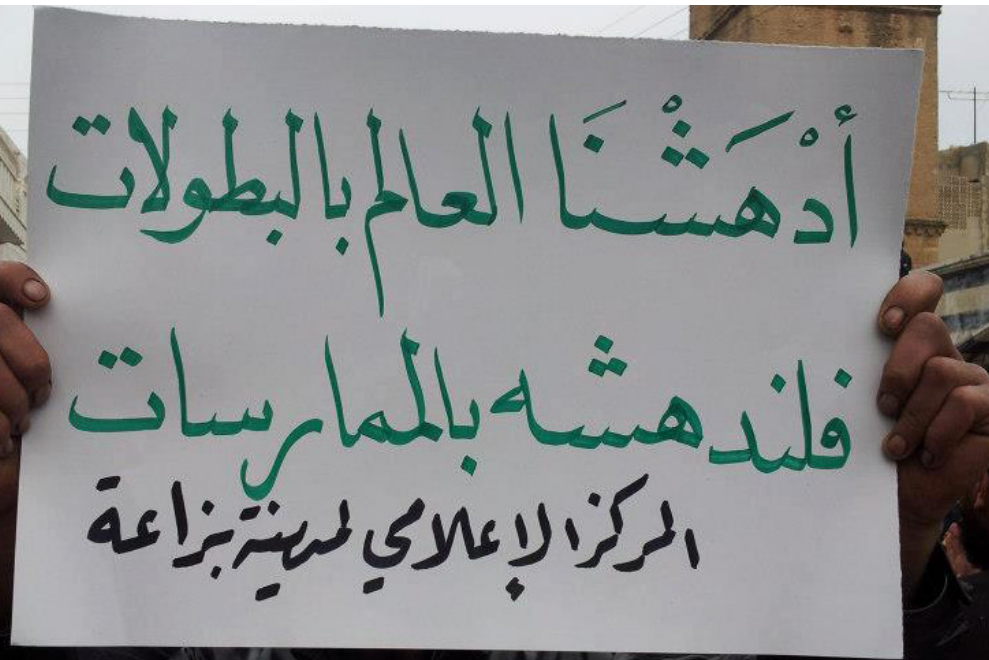 أدْهَشْنَا العالم بالبطولات
فلندهشه بالممارسات
المركز الإعلامي لمدينة بزاعة